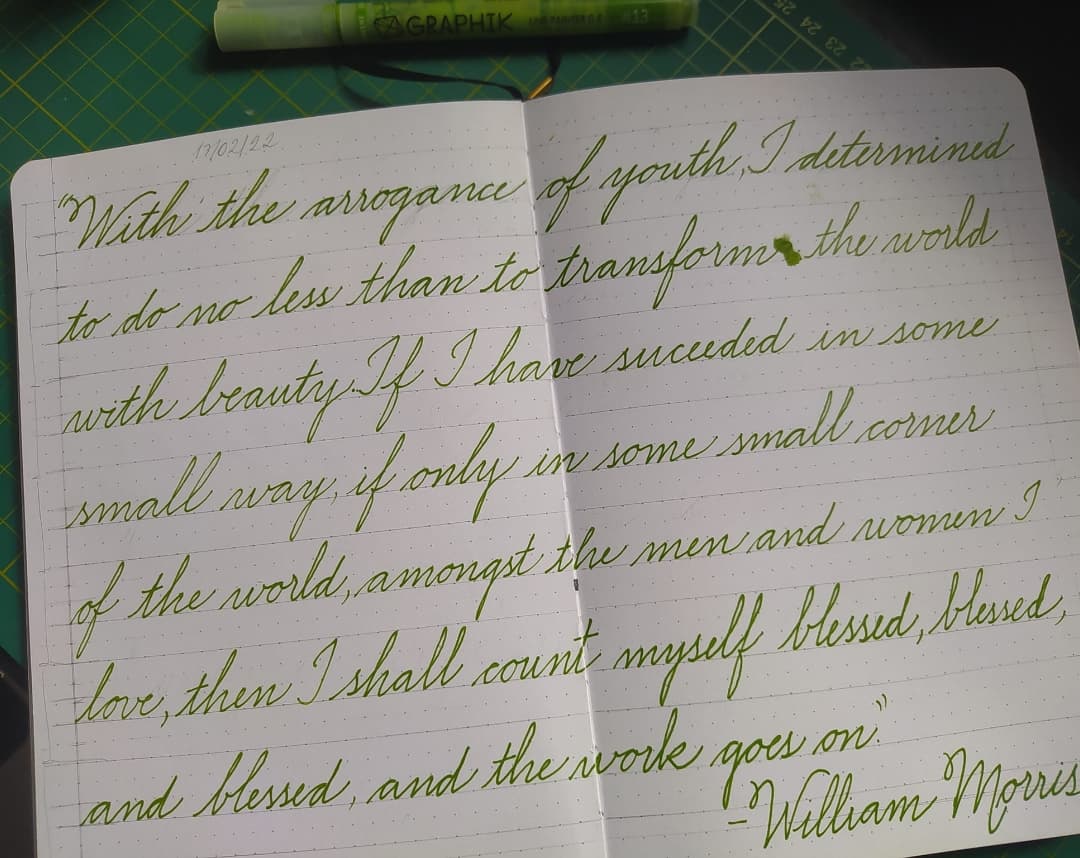 GRAPHIK LINE PAINTER 0.5 #13
25
24
23
22
14
17/02/22
"With the arrogance of youth, I determined
to do no less than to transform the world
with beauty. If I have succeded in some
small way, if only in some small corner
of the world, amongst the men and women I
love, then I shall count myself blessed, blessed,
and blessed, and the work goes on."
-William Morris